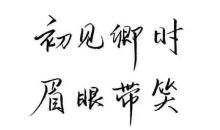 初见卿时
眉眼带笑